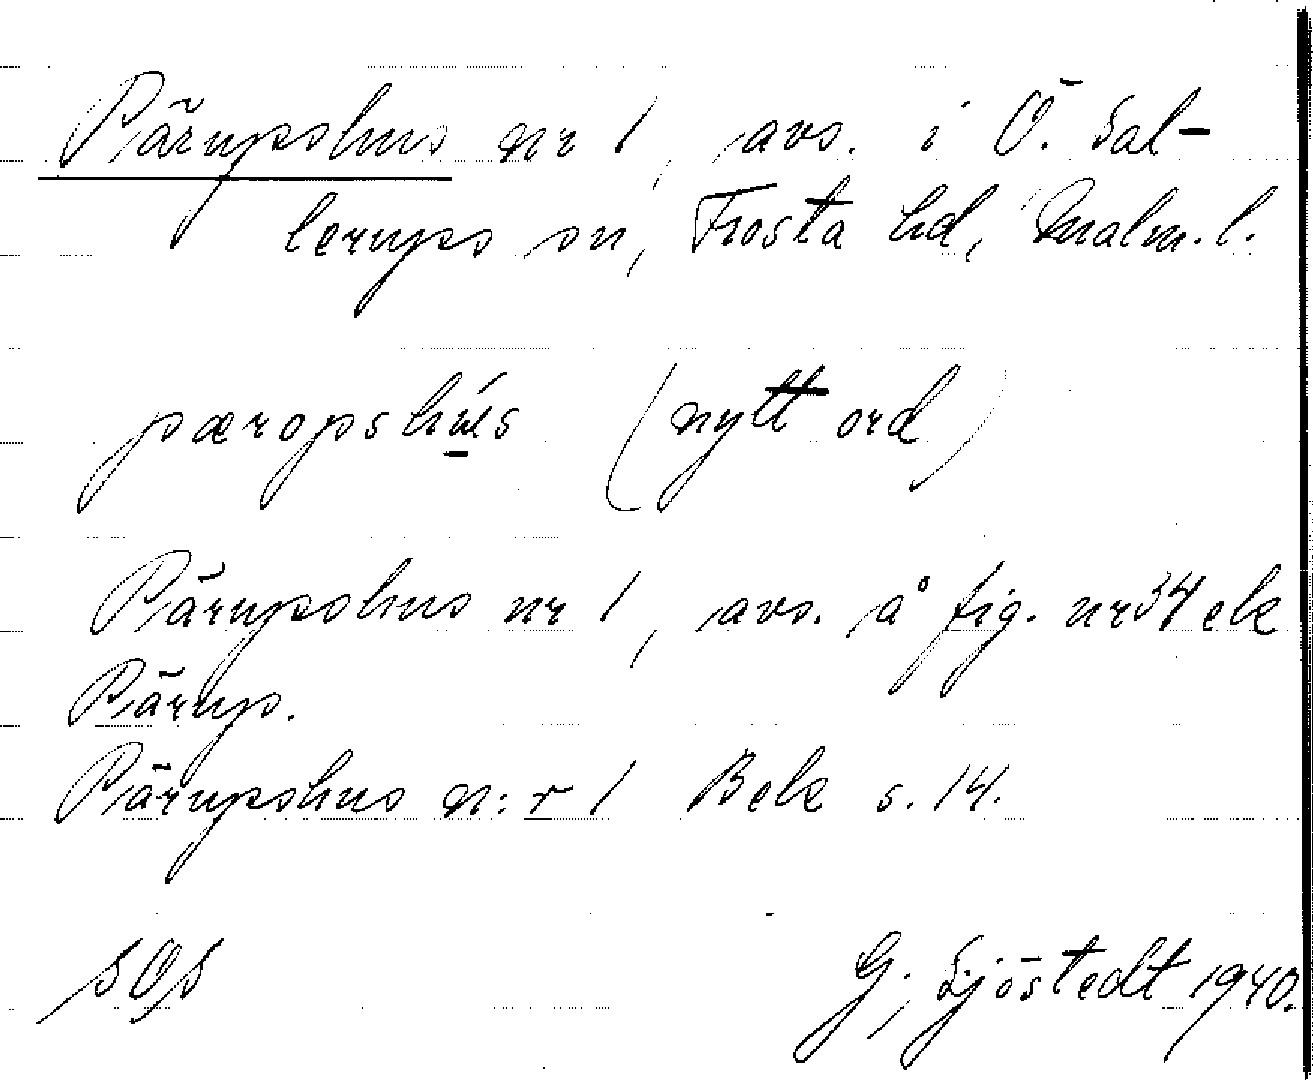 Pärupshus nr 1, avs. i Ö. Sal-
lerups sn, Frosta hd, Malm. l.
pæropshú̱s (nytt ord)
Pärupshus nr 1, avs. å fig. nr 34 ek
Pärup.
Pärupshus n:r 1 Bek s. 14.
G. Sjöstedt 1940.